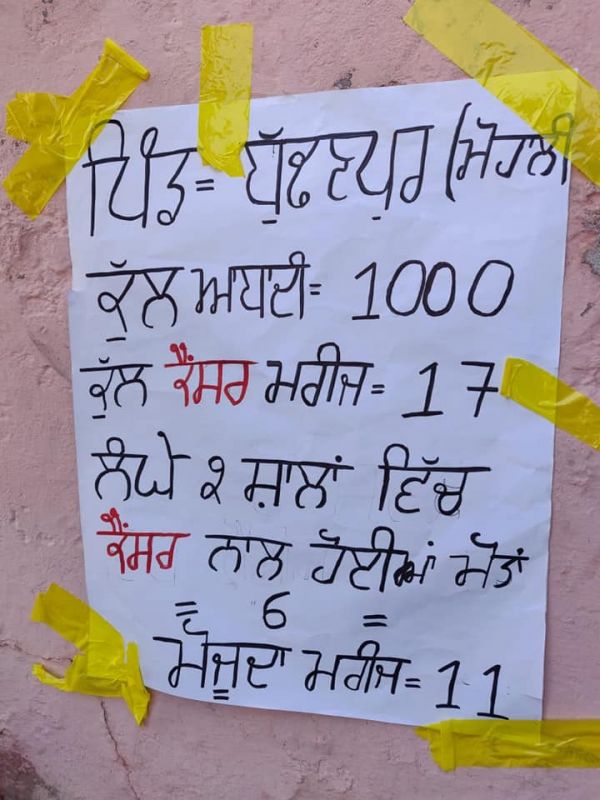 ਪਿੰਡ= ਬੁੱਢਣਪੁਰ (ਮੋਹਾਲੀ
ਕੁੱਲ ਆਬਾਦੀ= 1000
ਕੁੱਲ ਕੈਂਸਰ ਮਰੀਜ= 17
ਲੰਘੇ ੨ ਸ਼ਾਲਾਂ ਵਿੱਚ
ਕੈਂਸਰ ਨਾਲ ਹੋਈਆਂ ਮੌਤਾਂ
= 6 =
ਮੌਜੂਦਾ ਮਰੀਜ= 11